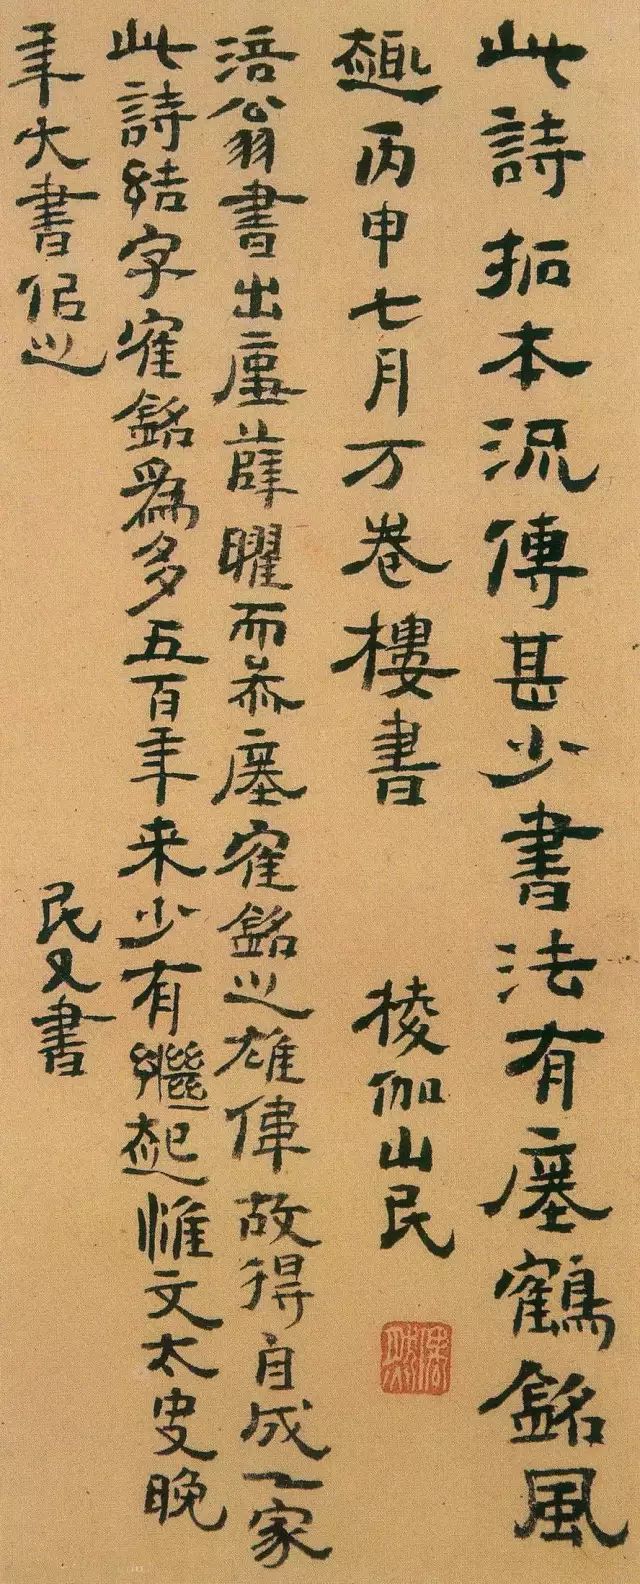 此詩拓本流傳甚少書法有瘞鶴銘風
趣丙申七月万卷樓書
楞伽山民
涪翁書出廛薛曜而叅瘞寉銘之雄偉故得自成一家
此詩結字寉銘爲多五百年来少有繼起惟文太史晚
年大書佀之
民又書